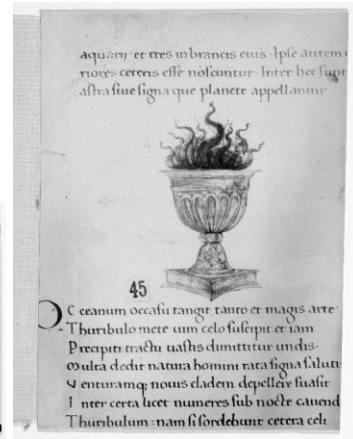 aquarii · et tres in brancis eius · Ipse autem
riores ceteris esse noscuntur · Inter hec sunt
astra siue signa que planete appellantur
45
Oceanum occasu tangit tanto et magis arte
Thuribulo mete cum celo suscipit et iam
Precipiti tractu uastis dimittitur undis ·
Multa dedit natura homini rata signa saluti
Venturamq; nouis cladem depellere suasit
Inter certa licet numeres sub nocte cauend
Thuribulum : nam si sordebunt cetera celi